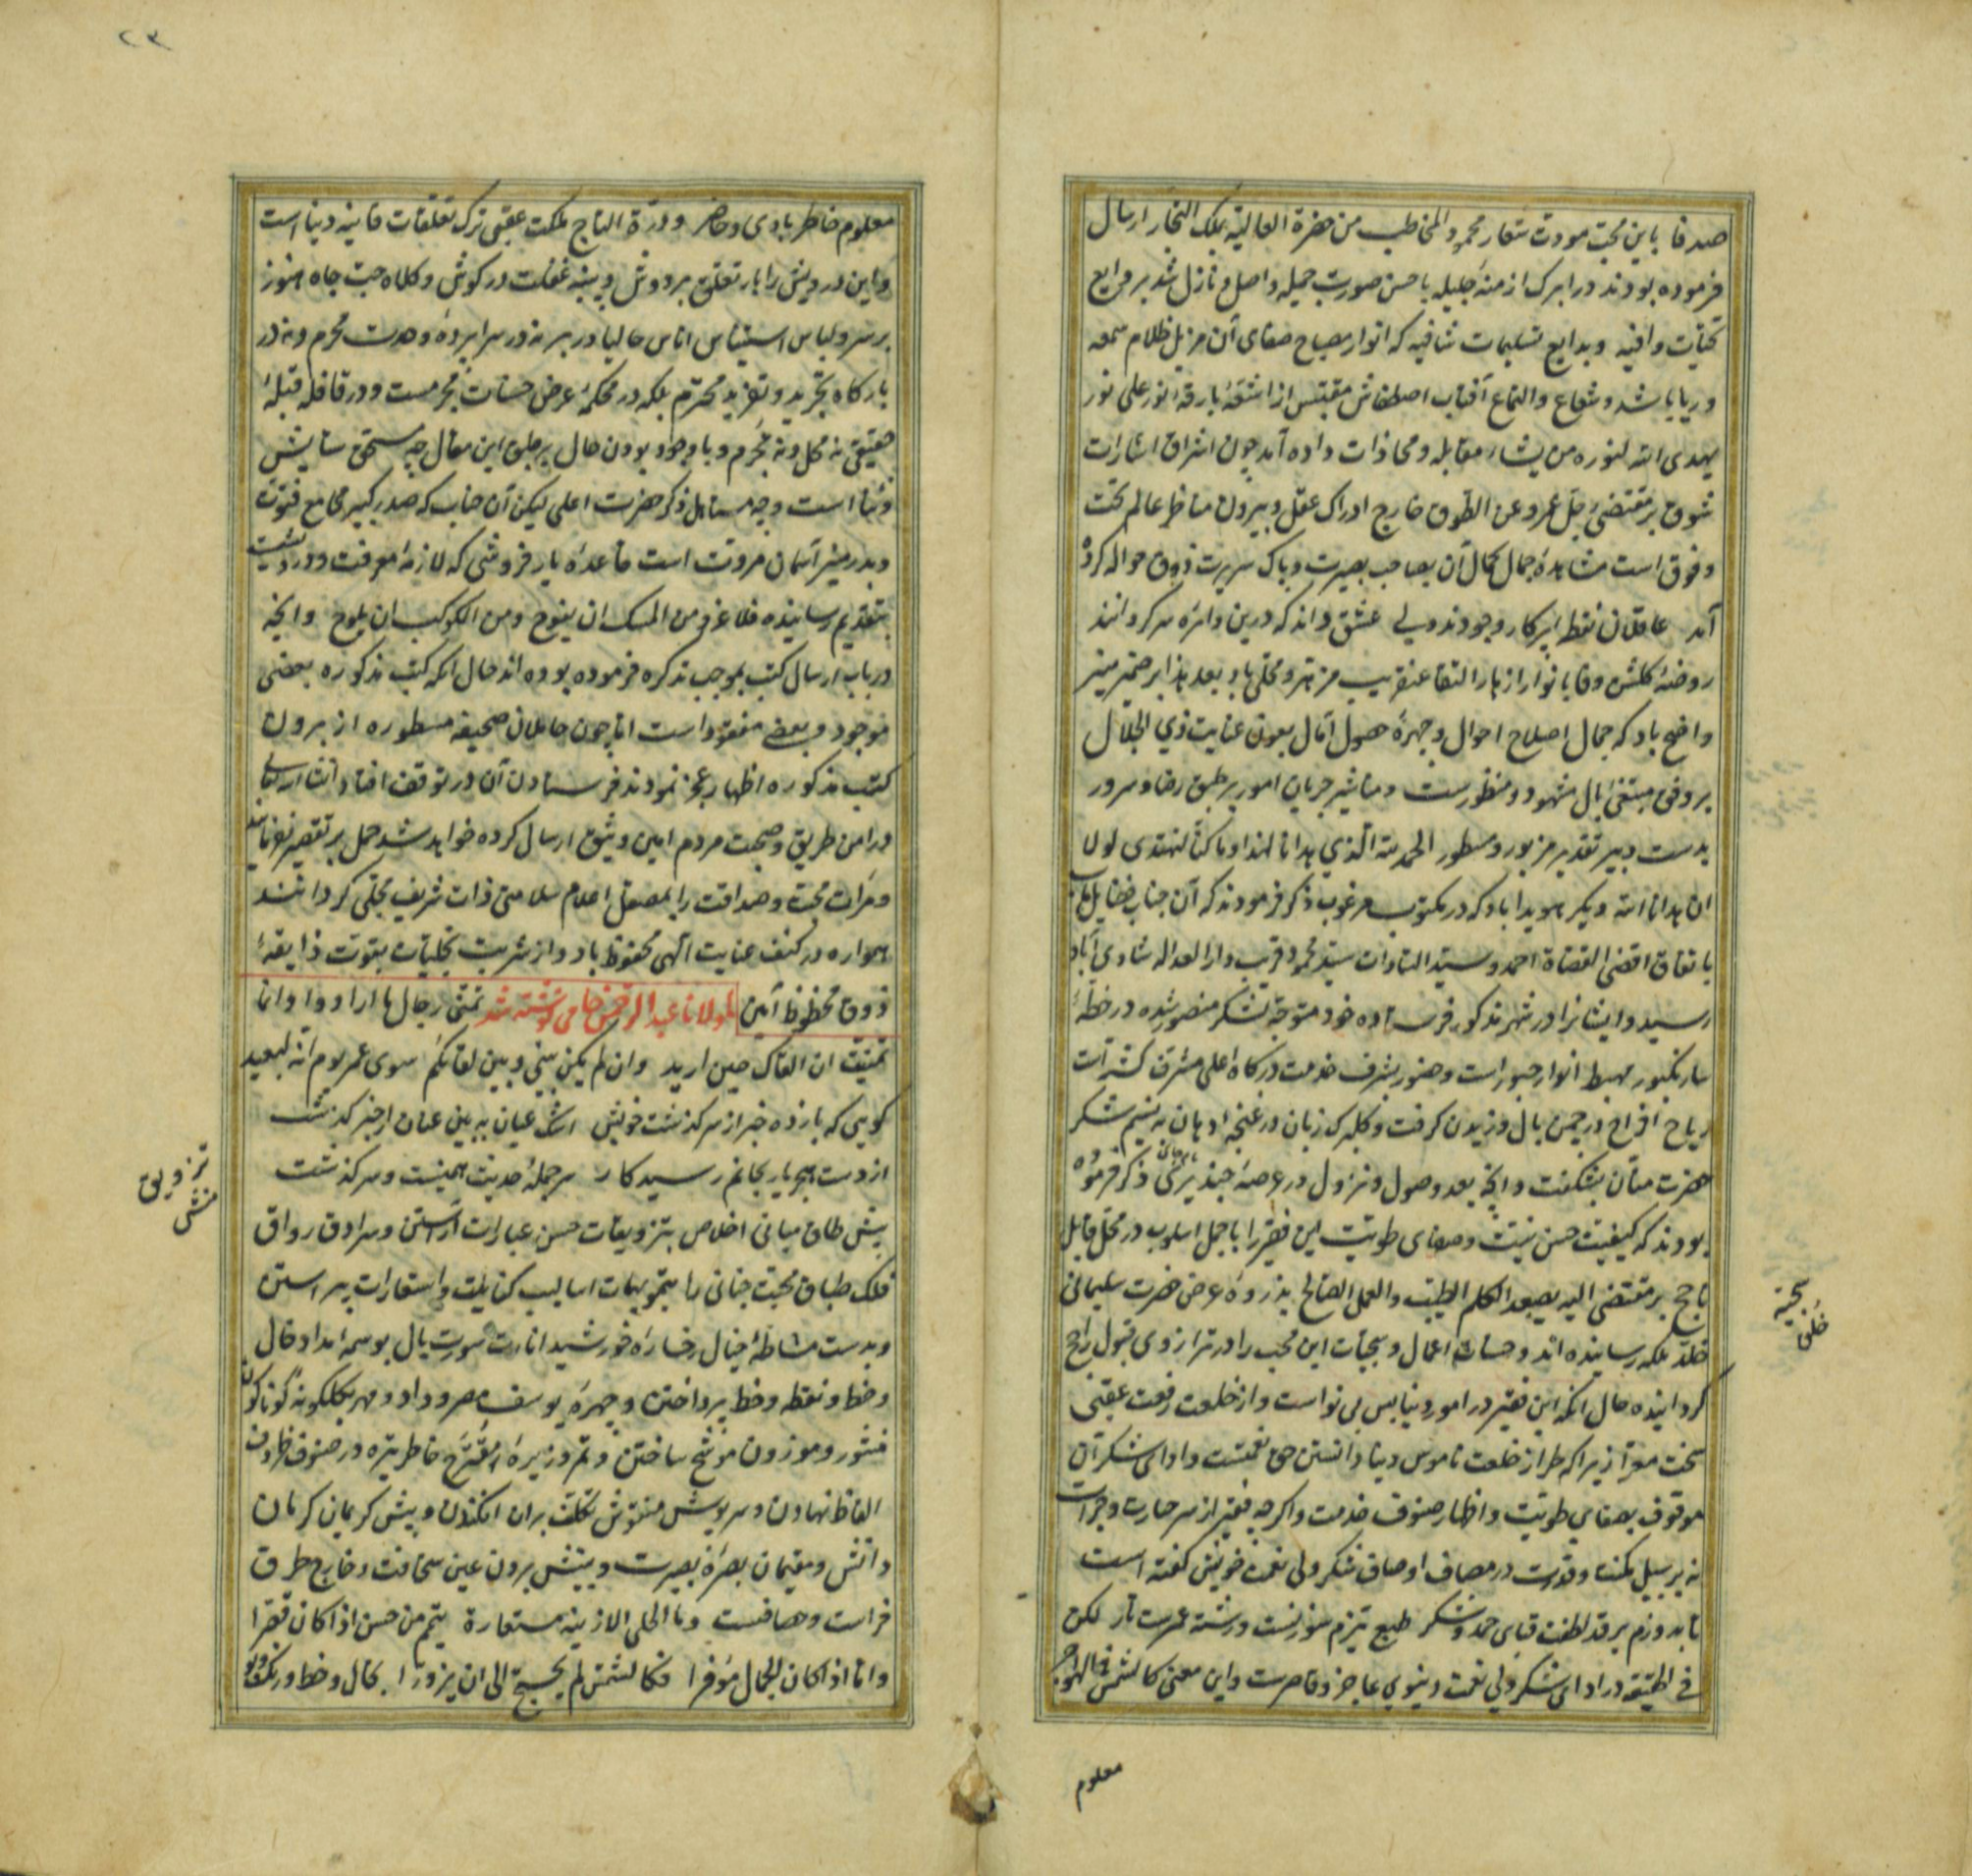 صدقا باین محبت مودت شعار محمود المخاطب من حضرة العالیة بملک التجار ارسال
فرموده بودند در ابرک ازمنهٔ جلیله باحسن صورت جمیله واصل و نازل شد بر
تحیّات وافیه و بدایع تسلیمات شافیه که انوار مصباح صفای آن مزیل ظلام سمعه
و ریا باشد و شعاع و التماع آفتاب مقتبس از اشعّهٔ بارقهٔ نور علی نور
یهدی الله لنوره من یشاء مقابله و محاذات داده آمد چون اشراق اشارات
شوق بر مقتضی جلّ عمرو عن الطوق خارج ادراک عقل و بیرون مناظر عالم تحت
و فوق است مشاهدهٔ جمال کمال آن بصاحب بصیرت و پاک سریرت ذوق حواله کرده
آمد عاقلان نقطهٔ پرکار وجودند ولی عشق داند که درین دایره سرگردانند
روضهٔ گلشن وفا بانوار ازهار التقا عنقریب مزهر و محلّی باد بعد هذا بر ضمیر منیر
واضح باد که جمال اصلاح احوال و چهرهٔ حصول آمال بعون عنایت ذی الجلال
بر وفق مبتغی بال مشهود و منظورست و مناشیر جریان امور بر طبق رضا و سرور
بدست دبیر تقدیر مزبور و مسطور الحمد لله الذی هدانا لهذا و ما کنّا لنهتدی لولا
ان هدانا الله دیگر هویدا باد که در مکتوب مرغوب ذکر فرمودند که آن جناب فضایل
باتفاق اقضی القضاة احمد و سید السادات سید محمود قریب دار العداله شادی آباد
رسید و ایشانرا در شهر مذکور فرستاده خود متوجه لشکر منصور شده در خطّهٔ
سارنکپور مهبط انوار حبور است و هنوز بشرف خدمت درگاه اعلی مشرف گشته است
ریاح افراح در چمن بال وزیدن گرفت و گلبرگ زبان در غنچهٔ دهان به نسیم شکر
حضرت منّان بشکفت و آنچه بعد وصول و نزول در عرصهٔ ذکر فرموده
بودند که کیفیت حسن نیّت و صفای طویّت این فقیر را باجمل اسلوب در محل قابل
ناجح بر مقتضی الیه یصعد الکلم الطیّب و العمل الصالح بذروهٔ عرض حضرت سلیمانی
خلّد ملکه رسانیده اند و حسنات اعمال و سجیّات این محب را در ترازوی قبول راجح
گردانیده حال آنکه این فقیر در امور دنیا بس بی نواست و از خلعت رفعت عقبی
سخت معرّا زیرا که طراز خلعت ناموس دنیا دانستن حق نعمتست و ادای شکر آن
موقوف بصفای طویّت و اظهار صنوف خدمت و اگرچه فقیر از سر جسارت و جرأت
نه بر سبیل مکنت و قدرت در مصاف اوصاف شکر ولی نعمت خویش گفته است
تا بدوزم بر قد لطفت قبای حمد و شکر طبع تیزم سوزنست و رشتهٔ عمرست تار لکن
فی الحقیقه در ادای شکر ولی نعمت دنیوی عاجز و قاصرست و این معنی کالشمس فی الهواجر
سجیّه
خلق
معلوم
۲۳
معلوم خاطر بادی و حاضر و درّة التاج مملکت عقبی ترک تعلقات فانیهٔ دنیا است
و این درویش را بار تعلق بر دوش و پنبهٔ غفلت در گوش و کلاه حبّ جاه هنوز
بر سر و لباس استیناس اناس حالیا در بر نه در سراپردهٔ وحدت محرم و نه در
بارگاه تجرید و تفرید محترم بلکه در محکمهٔ عرض حسنات مجرمست و در قافلهٔ قبلهٔ
حقیقی نه محل و نه مُحرم و با وجود بودن حال بر طبق این مقال چه مستحق ستایش
و ثنا است و چه مستاهل ذکر حضرت اعلی لیکن آن جناب که صدر کبیر مجامع فتوّت
و بدر منیر آسمان مروّت است قاعدهٔ یار فروشی که لازمهٔ معرفت و درویشیست
بتقدیم رسانیده فلا غرو من المسک ان یفوح و من الکوکب ان یلوح و آنچه
در باب ارسال کتب بموجب تذکره فرموده بوده اند حال آنکه کتب مذکوره بعضی
موجود و بعضی مفقود است اما چون حاملان صحیفه مسطوره از بردن
کتب مذکوره اظهار عجز نمودند فرستادن آن در توقف افتاد انشا الله تعالی
در امن طریق و صحبت مردم امین و وثیق ارسال کرده خواهد شد حمل بر تقصیر نفرمایند
و مرآت محبّت و صداقت را بمصقل اعلام سلامتی ذات شریف مجلّی گردانند
همواره در کنف عنایت الهی محفوظ باد و از شربت تجلیّات بقوّت ذایقهٔ
ذوق محظوظ آمین بمولانا عبد الرحمن جامی نوشته شد تمنّی رجال ما ارادوا و انا
تمنیت ان القاک حین ارید و ان لم یکن بینی و بین لقائکم سوی عمر یوم انّه لبعید
گویی که باز ده خبر از سرگذشت خویش اشک عیان ببین عنان از خبر گذشت
از دست هجر یار بجانم رسید کار سر جملهٔ حدیث همینست و سرگذشت
پیش طاق مبانی اخلاص بتزویقات حسن عبارات آراستن و سرادق رواق
فلک طباق محبت جنانی را بتمویهات اسالیب کنایات و استعارات پیراستن
و بدست مشاطهٔ خیال رخسارهٔ خورشید انارت صورت بال بوسمهٔ امداد خال
و خط و نقطه و خط پرداختن و چهرهٔ یوسف مصر وداد و مهر بگلگونهٔ گوناگون
منثور و موزون موشّح ساختن و ثمر در صنوف ظروف
الفاظ نهادن و سرپوش منقوش تکلّف بران افکندن و پیش کریمان کرمان
دانش و مقیمان بصرهٔ بصیرت و بینش برون عین سخافت و خارج طرق
فراست و حصافتست و ما الحلی الا زینة مستعارة یتمّم من حسن اذا کان قصّرا
و اما اذا کان الجمال موفّرا فکالشمس لم یحتج الی ان یزوّرا بخال و خط و رنگ و بو
تزویق
منقش